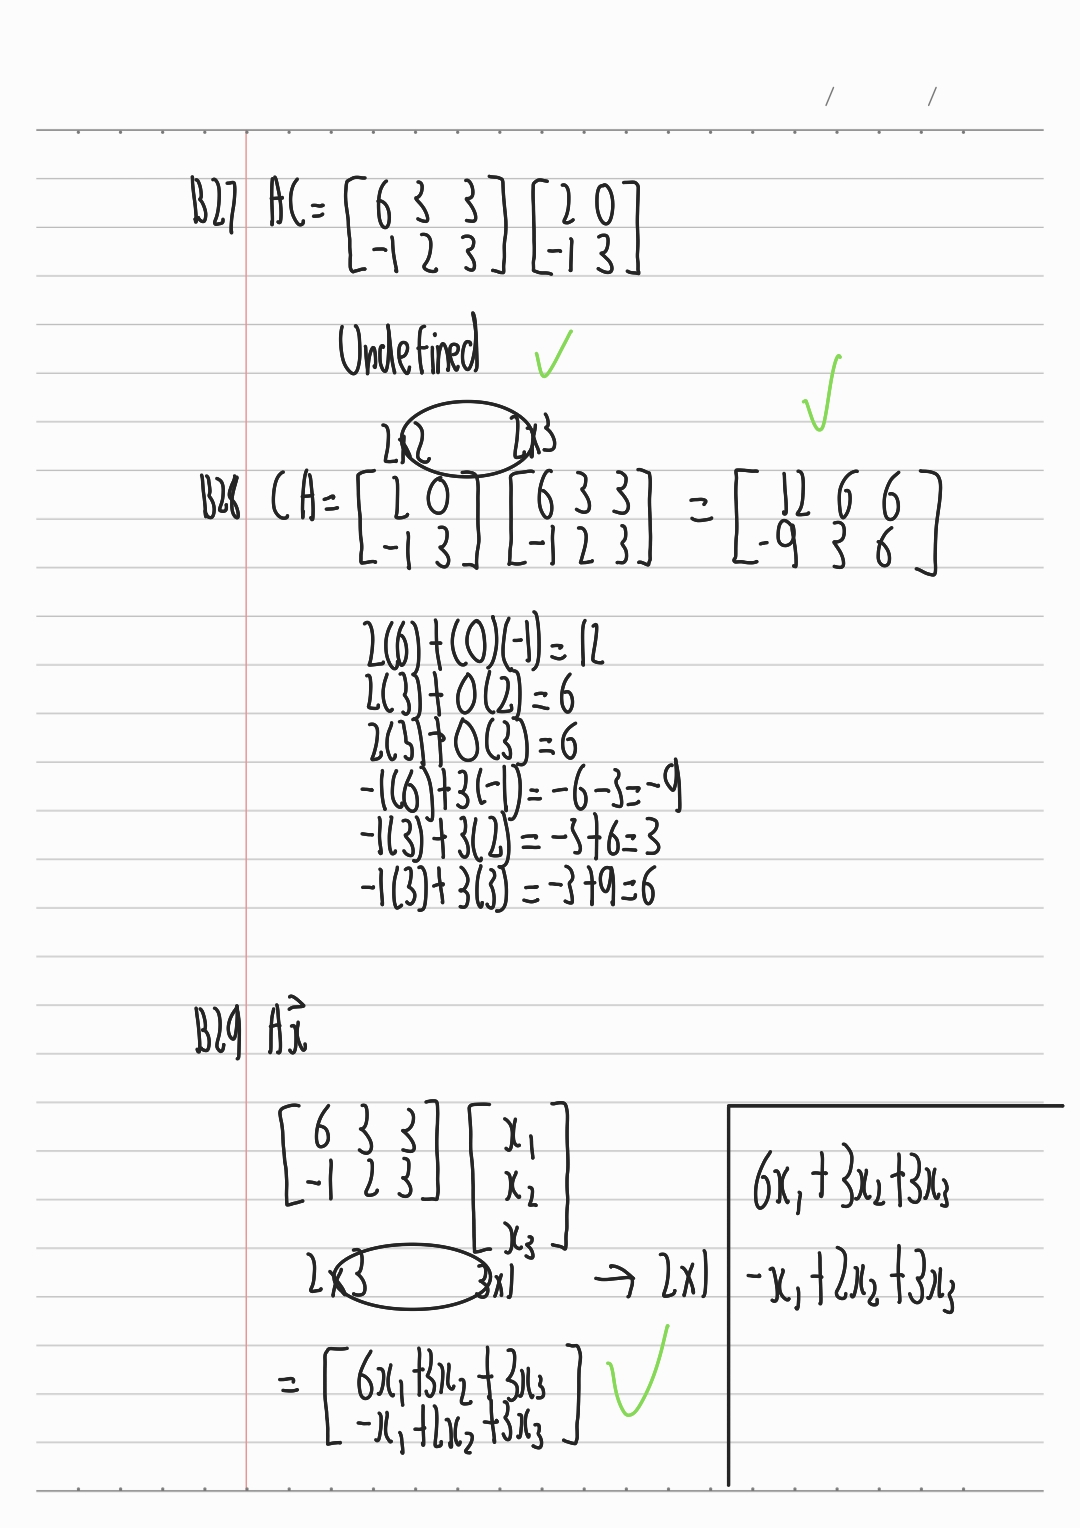 B27 AC = [ 6 3 3 ] [ 2 0 ]
[ -1 2 3 ] [ -1 3 ]
Undefined ✓
2x2 2x3
B28 CA = [ 2 0 ] [ 6 3 3 ] = [ 12 6 6 ]
[ -1 3 ] [ -1 2 3 ] [ -9 3 6 ]
2(6) + (0)(-1) = 12
2(3) + 0(2) = 6
2(3) + 0(3) = 6
-1(6) + 3(-1) = -6 - 3 = -9
-1(3) + 3(2) = -3 + 6 = 3
-1(3) + 3(3) = -3 + 9 = 6
B29 Ax⃗
[ 6 3 3 ] [ x₁ ]
[ -1 2 3 ] [ x₂ ]
[ x₃ ]
2x3 3x1 → 2x1
= [ 6x₁ + 3x₂ + 3x₃ ] ✓
[ -x₁ + 2x₂ + 3x₃ ]
6x₁ + 3x₂ + 3x₃
-x₁ + 2x₂ + 3x₃